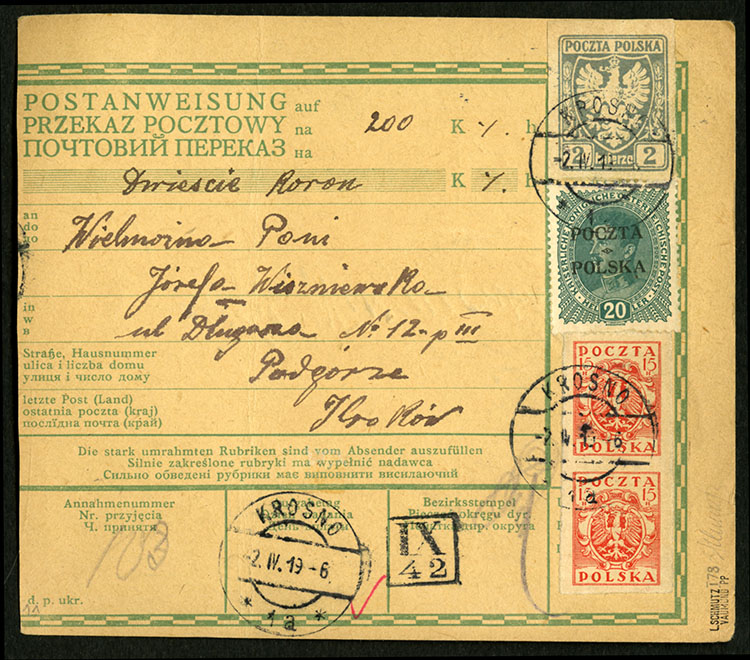 POSTANWEISUNG auf
PRZEKAZ POCZTOWY na 200 K h
ПОЧТОВИЙ ПЕРЕКАЗ на
Dwieście Koron K
an
do
по
Wielmożna Pani
Józefa Wiszniewska
in
w
в
ul Długosza No 12 p III
Straße, Hausnummer
ulica i liczba domu
улиця і число дому
Podgórze
letzte Post (Land)
ostatnia poczta (kraj)
послїдна почта (край)
Kraków
Die stark umrahmten Rubriken sind vom Absender auszufüllen
Silnie zakreślone rubryki ma wypełnić nadawca
Сильно обведені рубрики має виповнити висилаючий
Annahmenummer
Nr. przyjęcia
Ч. приняти
Bezirksstempel
d. p. ukr.
KROSNO
-2.IV.19-6
* 1a *
IX
42
POCZTA POLSKA
2 2
KROSNO
POCZTA
POLSKA
20
POCZTA
15 15
KROSNO
1a
POCZTA
15 15
POLSKA
L. SCHMUTZ
VADMOND PP